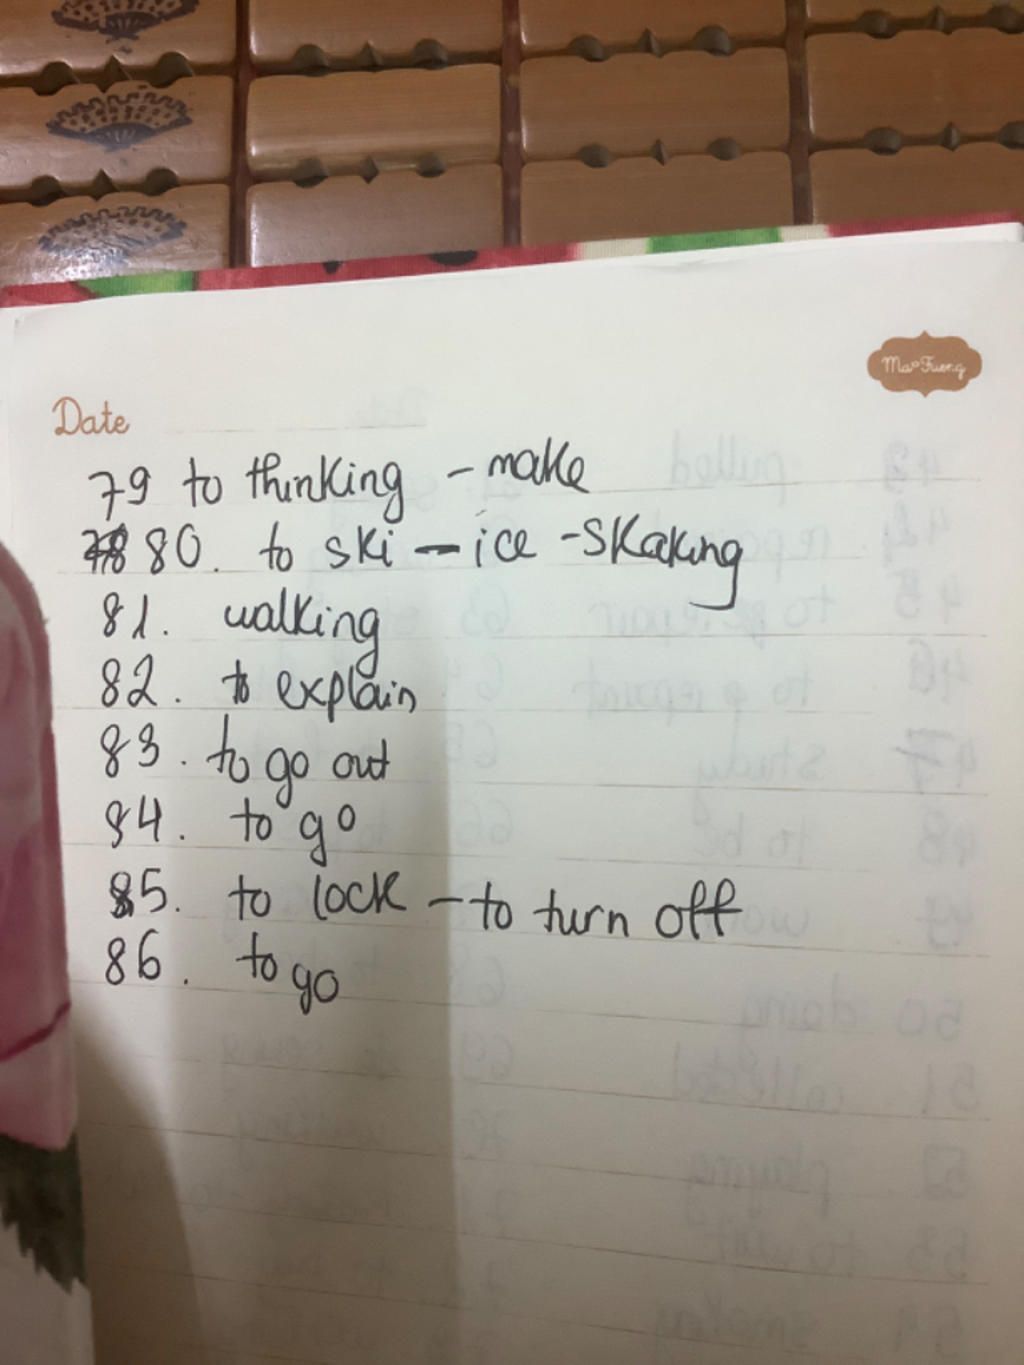 Date
79 to thinking - make
80. to ski - ice - skaking
81. walking
82. to explain
83. to go out
84. to go
85. to lock - to turn off
86. to go